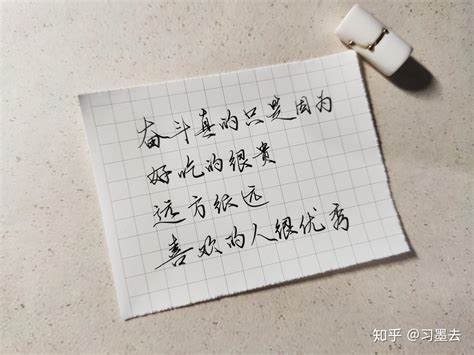 奋斗真的只是因为
好吃的很贵
远方很远
喜欢的人很优秀
知乎 @习墨去